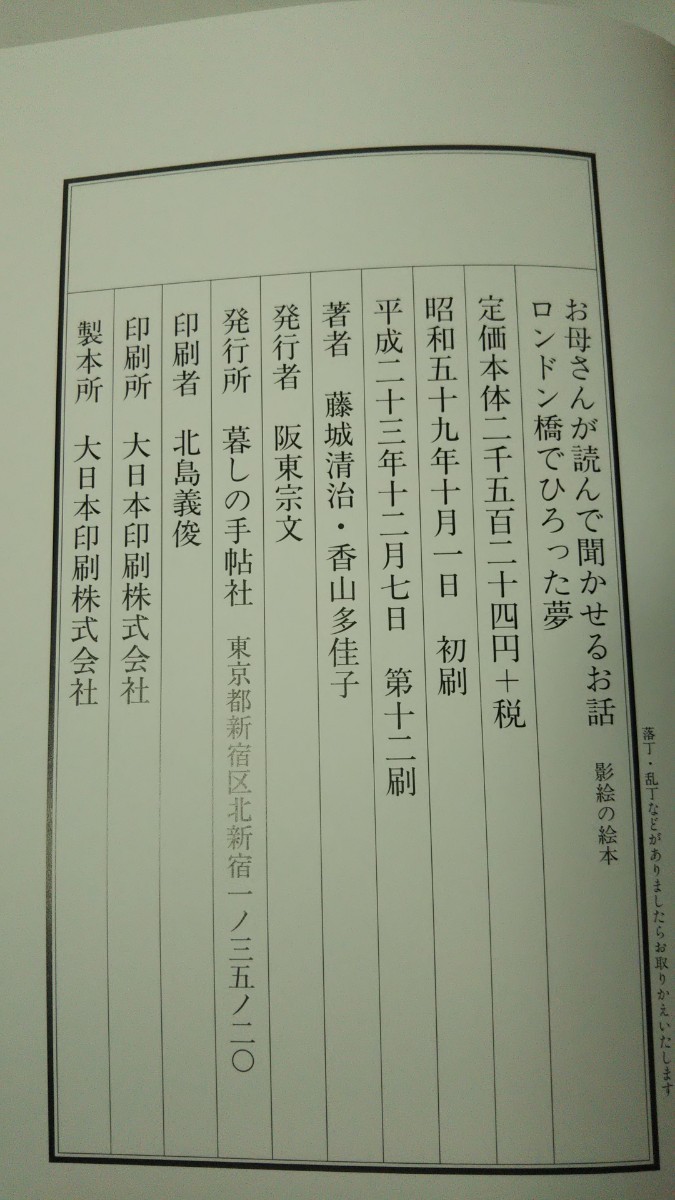 落丁・乱丁などがありましたらお取りかえいたします
お母さんが読んで聞かせるお話　影絵の絵本
ロンドン橋でひろった夢
定価本体二千五百二十四円＋税
昭和五十九年十月一日　初刷
平成二十三年十二月七日　第十二刷
著者　藤城清治・香山多佳子
発行者　阪東宗文
発行所　暮しの手帖社　東京都新宿区北新宿一ノ三五ノ二〇
印刷者　北島義俊
印刷所　大日本印刷株式会社
製本所　大日本印刷株式会社